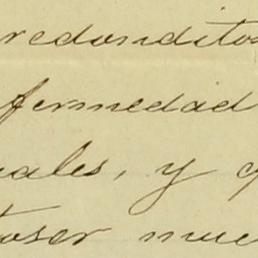 redondito
fermedad
ales, y q
toser muc